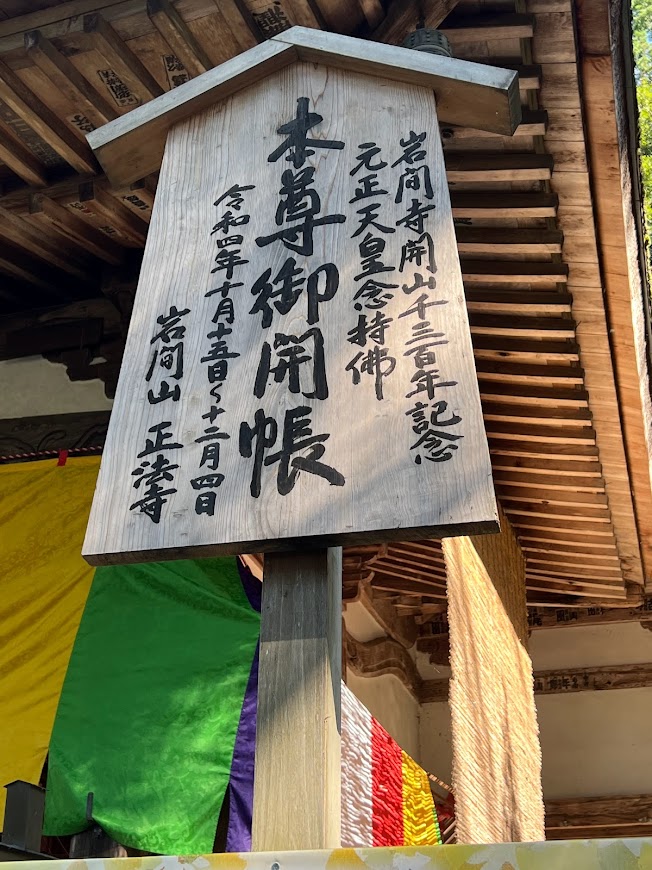 岩間寺開山千三百年記念
元正天皇念持佛
本尊御開帳
令和四年十月十五日〜十二月四日
岩間山 正法寺